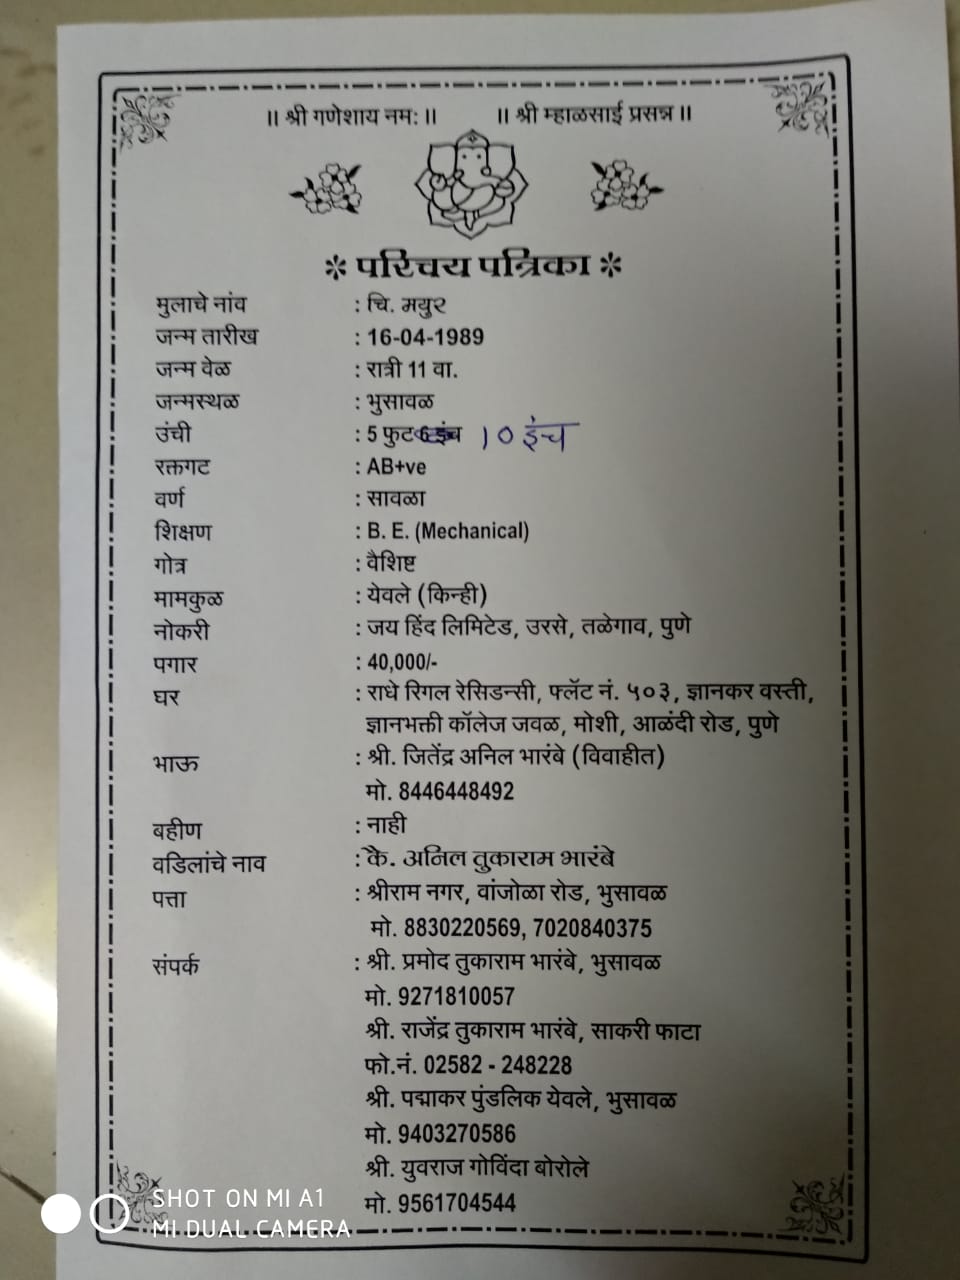 ॥ श्री गणेशाय नमः ॥ ॥ श्री म्हाळसाई प्रसन्न ॥
* परिचय पत्रिका *
मुलाचे नांव : चि. मयुर
जन्म तारीख : 16-04-1989
जन्म वेळ : रात्री 11 वा.
जन्मस्थळ : भुसावळ
उंची : 5 फुट 6 इंच 10 इंच
रक्तगट : AB+ve
वर्ण : सावळा
शिक्षण : B. E. (Mechanical)
गोत्र : वैशिष्ट
मामकुळ : येवले (किन्ही)
नोकरी : जय हिंद लिमिटेड, उरसे, तळेगाव, पुणे
पगार : 40,000/-
घर : राधे रिगल रेसिडन्सी, फ्लॅट नं. ५०३, ज्ञानकर वस्ती,
ज्ञानभक्ती कॉलेज जवळ, मोशी, आळंदी रोड, पुणे
भाऊ : श्री. जितेंद्र अनिल भारंबे (विवाहीत)
मो. 8446448492
बहीण : नाही
वडिलांचे नाव : कै. अनिल तुकाराम भारंबे
पत्ता : श्रीराम नगर, वांजोळा रोड, भुसावळ
मो. 8830220569, 7020840375
संपर्क : श्री. प्रमोद तुकाराम भारंबे, भुसावळ
मो. 9271810057
श्री. राजेंद्र तुकाराम भारंबे, साकरी फाटा
फो.नं. 02582 - 248228
श्री. पद्माकर पुंडलिक येवले, भुसावळ
मो. 9403270586
श्री. युवराज गोविंदा बोरोले
मो. 9561704544
SHOT ON MI A1
MI DUAL CAMERA